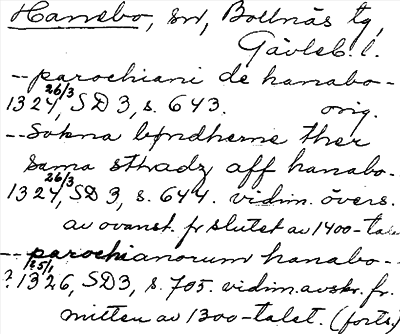 Hanebo, sn, Bollnäs tg,
Gävleb. l.
-- parochiani de hanabo --
1324, 26/3, SD 3, s. 643. orig.
-- Sokna bøndherne ther
sama sthadz aff hanabo --
1324, 26/3, SD 3, s. 644. vidim. övers.
av ovanst. fr slutet av 1400-talet
-- parochianorum hanabo --
? 1326, 25/1, SD3, s. 705. vidim. avskr. fr.
mitten av 1300-talet (forts)